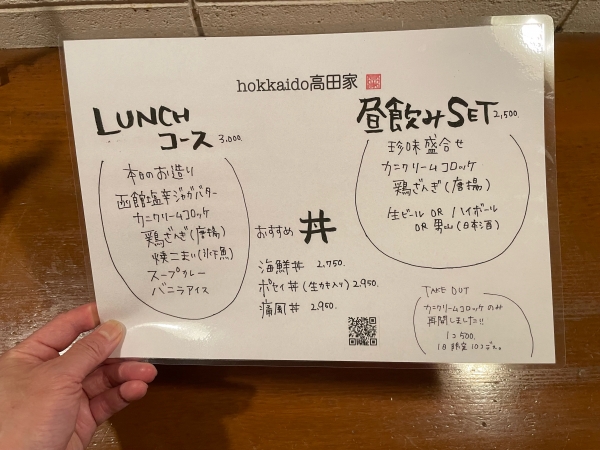 hokkaido高田家
LUNCH
コース 3,000.
本日のお造り
函館塩辛ジャガバター
カニクリームコロッケ
鶏ざんぎ(唐揚)
焼こまい(氷下魚)
スープカレー
バニラアイス
おすすめ 丼
海鮮丼 2,750.
ポセイ丼(生カキ入り) 2950.
痛風丼 2950.
昼飲みSET 2,500.
珍味盛合せ
カニクリームコロッケ
鶏ざんぎ(唐揚)
生ビール OR ハイボール
OR 男山(日本酒)
TAKE OUT
カニクリームコロッケのみ
再開しました!!
1コ500.
1日限定10コデス。